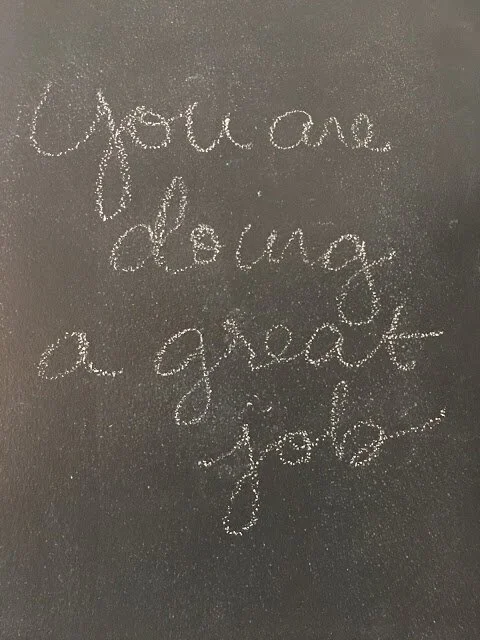 You are
doing
a great
job